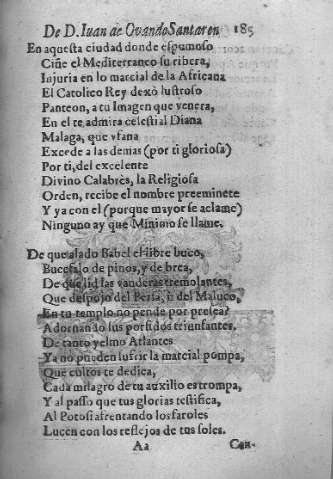 De D. Iuan de Ovando Santaren 185
En aquesta ciudad donde espumoso
Ciñe el Mediterraneo su ribera,
Injuria en lo marcial de la Africana
El Catolico Rey dexò lustroso
Panteon, a tu Imagen que venera,
En el te admira celestial Diana
Malaga, que vfana
Excede a las demas (por ti gloriosa)
Por ti, del excelente
Divino Calabrès, la Religiosa
Orden, recibe el nombre preeminēte
Y ya con el (porque mayor se aclame)
Ninguno ay que Minimo se llame.
De que alado Babel el libre buco,
Bucefalo de pinos, y de brea,
De que lid las vanderas tremolantes,
Que despojo del Persa, ù del Maluco,
En tu templo no pende por presea?
Adornando sus porfidos triunfantes.
De tanto yelmo Atlantes
Ya no pueden sufrir la marcial pompa,
Que cultos te dedica,
Cada milagro de tu auxilio es trompa,
Y al passo que tus glorias testifica,
Al Potosi afrentando los faroles
Lucen con los reflejos de tus soles.
Aa Con-